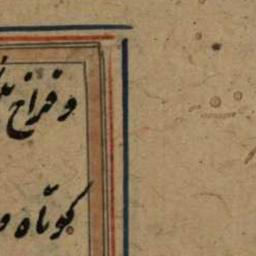 و فراخ
کوتاه و